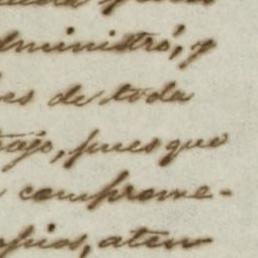 dministró, y
es de toda
ajo, pues que
comprome-
pios, aten